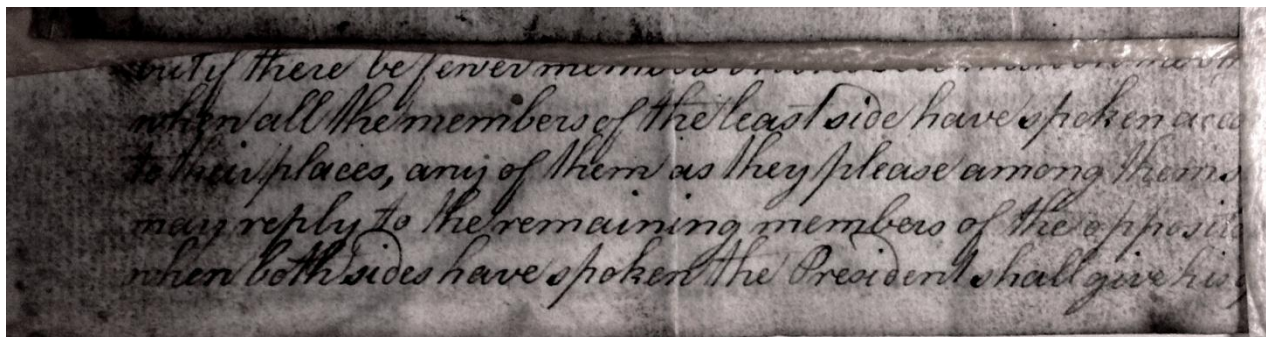 but if there be fewer members on
when all the members of the least side have spoken
to their places, any of them as they please among
may reply to the remaining members of the
when both sides have spoken the President shall give his